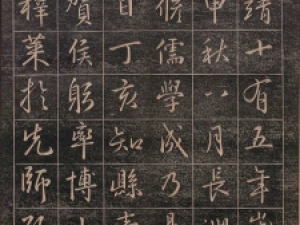 靖十有五年歲
申秋八月長洲
脩儒學成乃
日丁亥知縣
賀侯躬率博士
釋菜扵先師